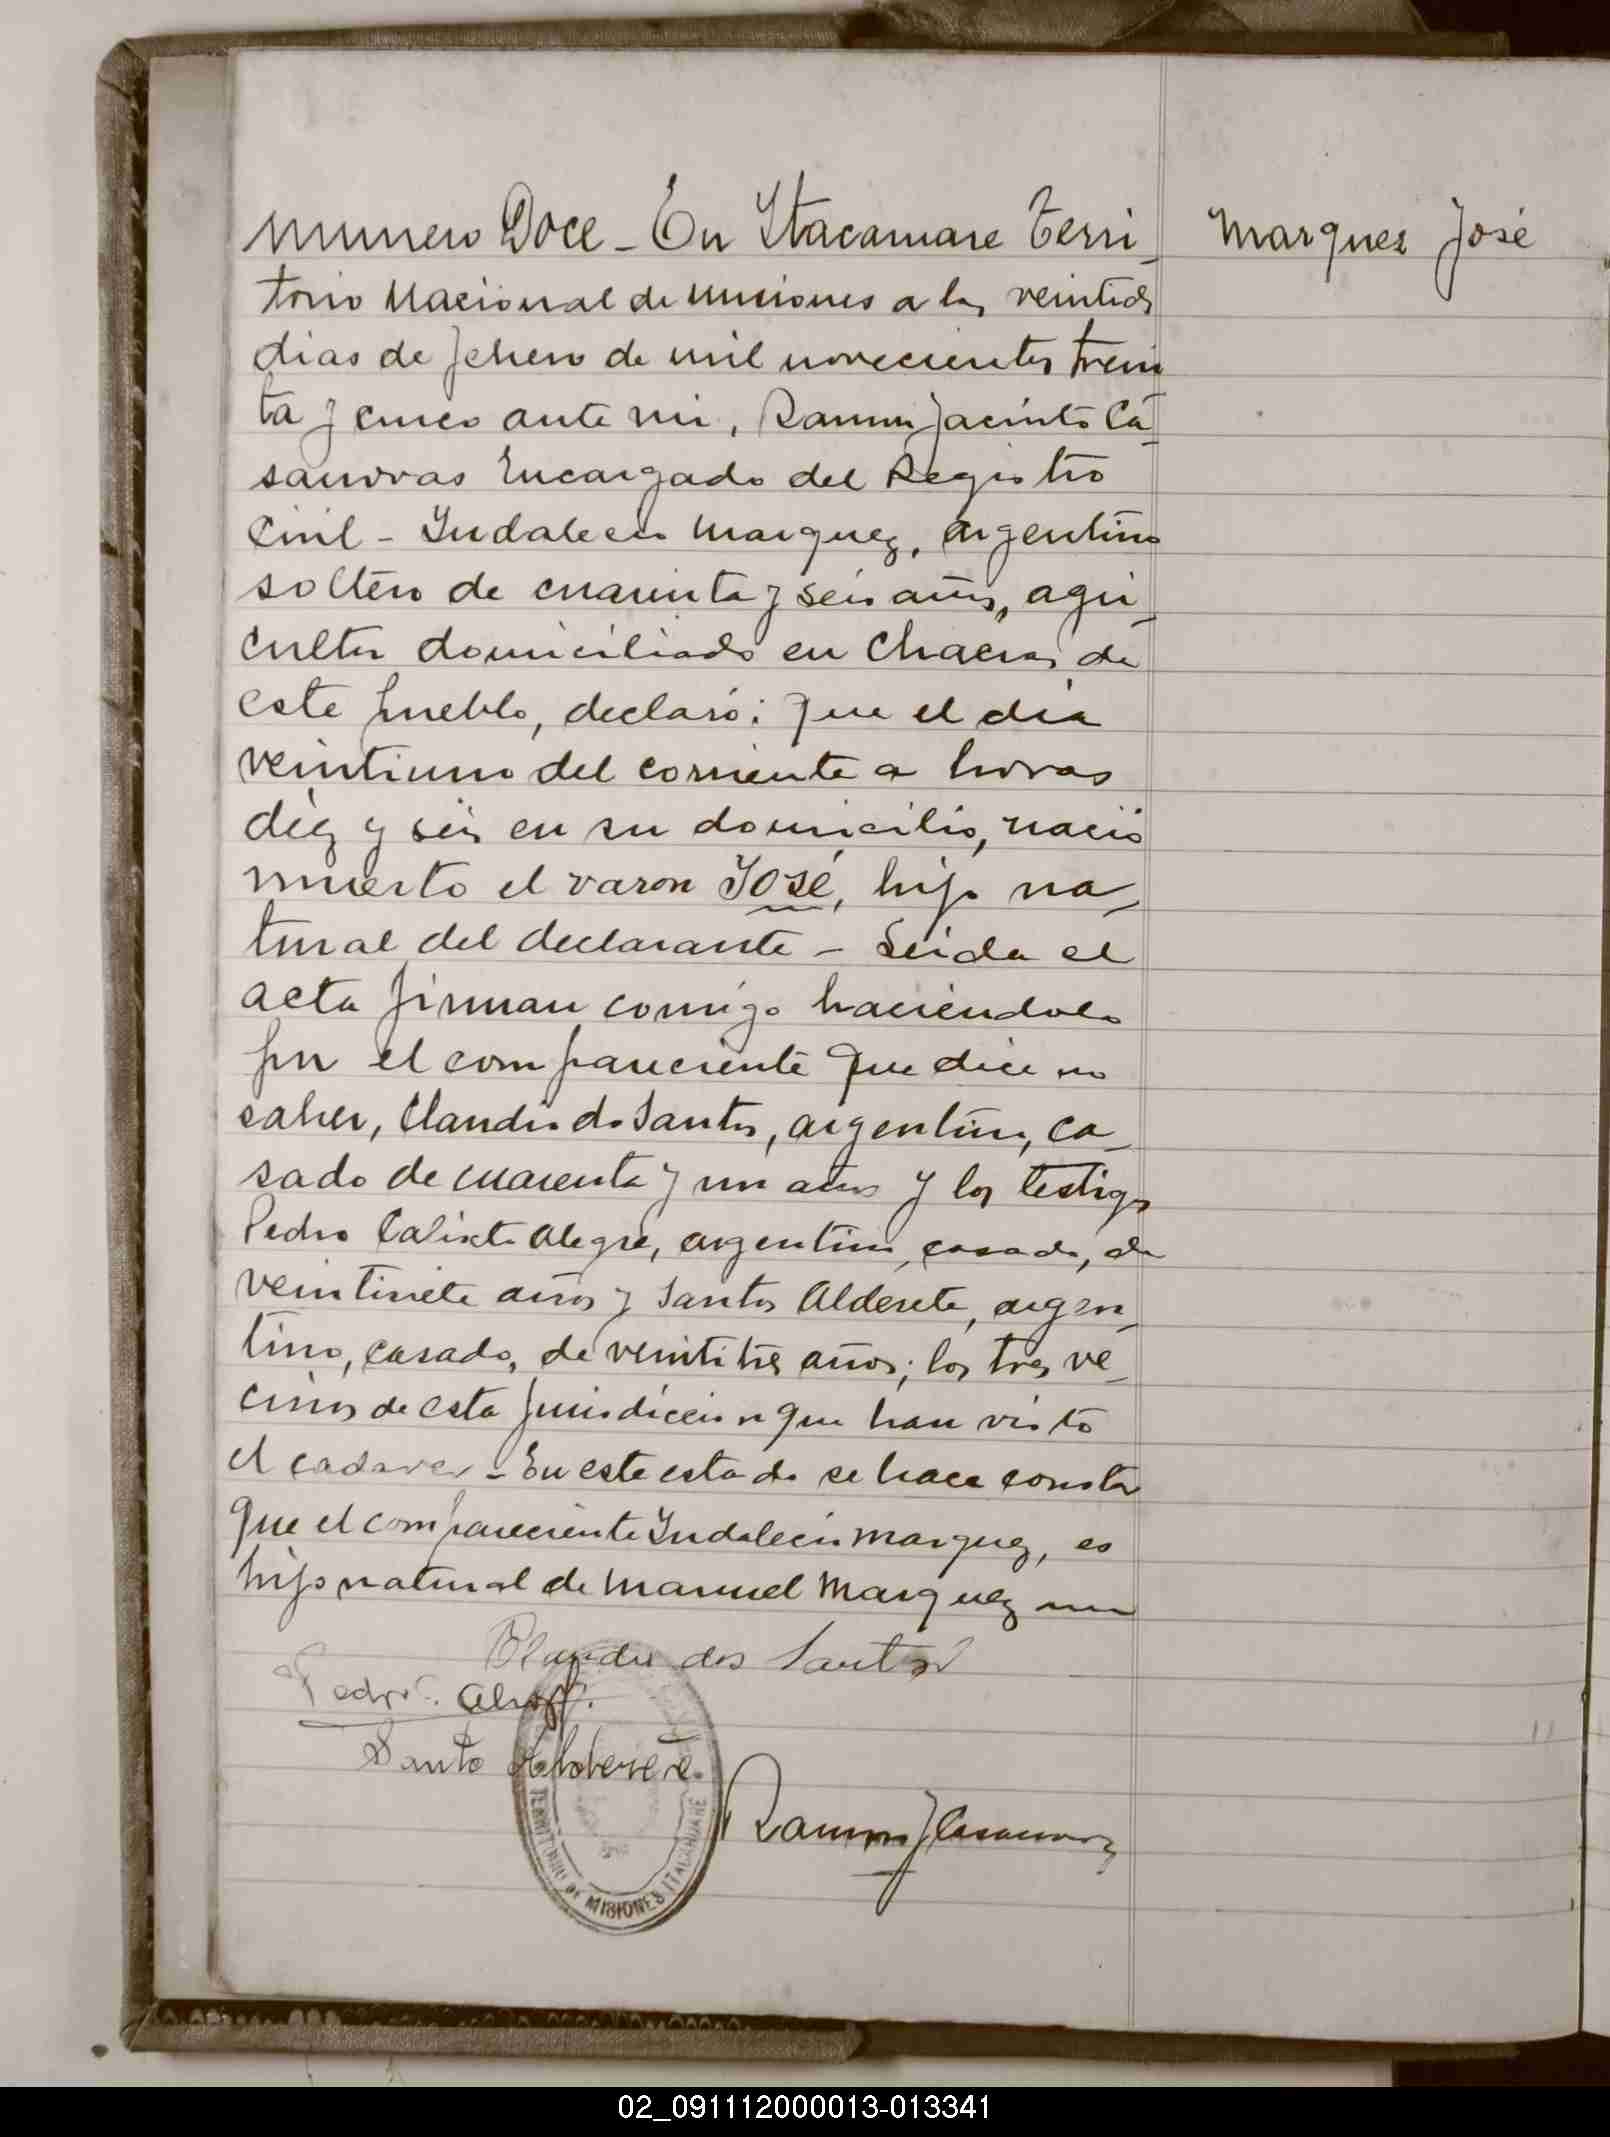 Numero Doce - En Itacaruare Terri-
torio Nacional de Misiones a los veintidos
dias de febrero de mil novecientos trein
ta y cinco ante mi, Ramon Jacinto Ca-
sanovas Encargado del Registro
Civil - Indalecio Marquez, argentino
soltero de cuarenta y seis años, agri-
cultor domiciliado en Chacras de
este pueblo, declaró: que el dia
veintiuno del corriente a horas
diez y seis en su domicilio, nació
muerto el varon José, hijo na-
tural del declarante - Leida el
acta firman comigo haciendolo
por el compareciente que dice no
saber, Claudio do Santos, argentino, ca-
sado de cuarenta y un años y los testigos
Pedro Calixto Alegre, argentino, casado, de
veintisiete años y Santos Alderete, argen-
tino, casado, de veintitres años; los tres ve-
cinos de esta jurisdiccion que han visto
el cadaver - En este estado se hace constar
que el compareciente Indalecio Marquez, es
hijo natural de Manuel Marquez
Claudio dos Santos
Pedro C. Alegre.
Santo Alderete.
Ramon J Casanovas
TERRITORIO DE MISIONES ITACARUARE
Marquez José
02_091112000013-013341